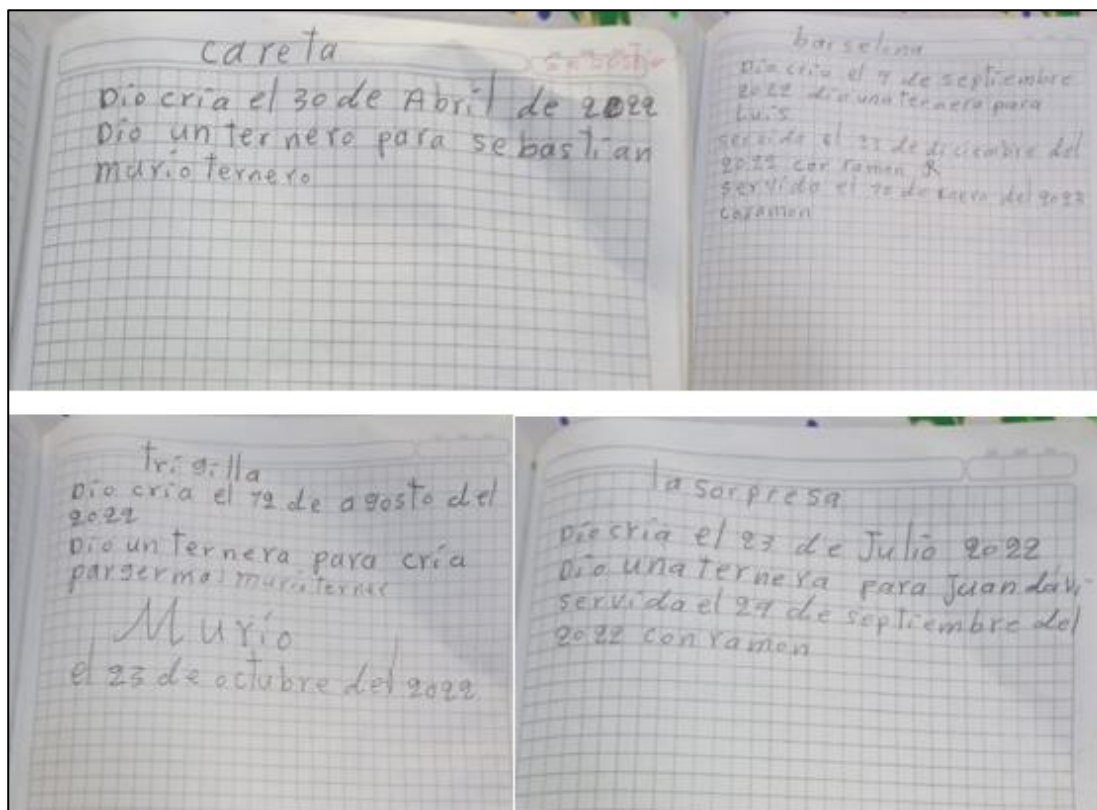 careta
Dio cria el 30 de Abril de 2022
Dio un ternero para sebastian
murio ternero
barselona
Dio cria el 9 de septiembre
2022 dio una ternera para
Luis
servido el 23 de diciembre del
2022 con ramon
servido el 10 de enero del 2023
caramon
trigilla
Dio cria el 12 de agosto del
2022
Dio un ternera para cria
murio
Murio
el 23 de octubre del 2022
la sorpresa
Dio cria el 23 de Julio 2022
Dio una ternera para Juan davi
servida el 29 de septiembre del
2022 con ramon